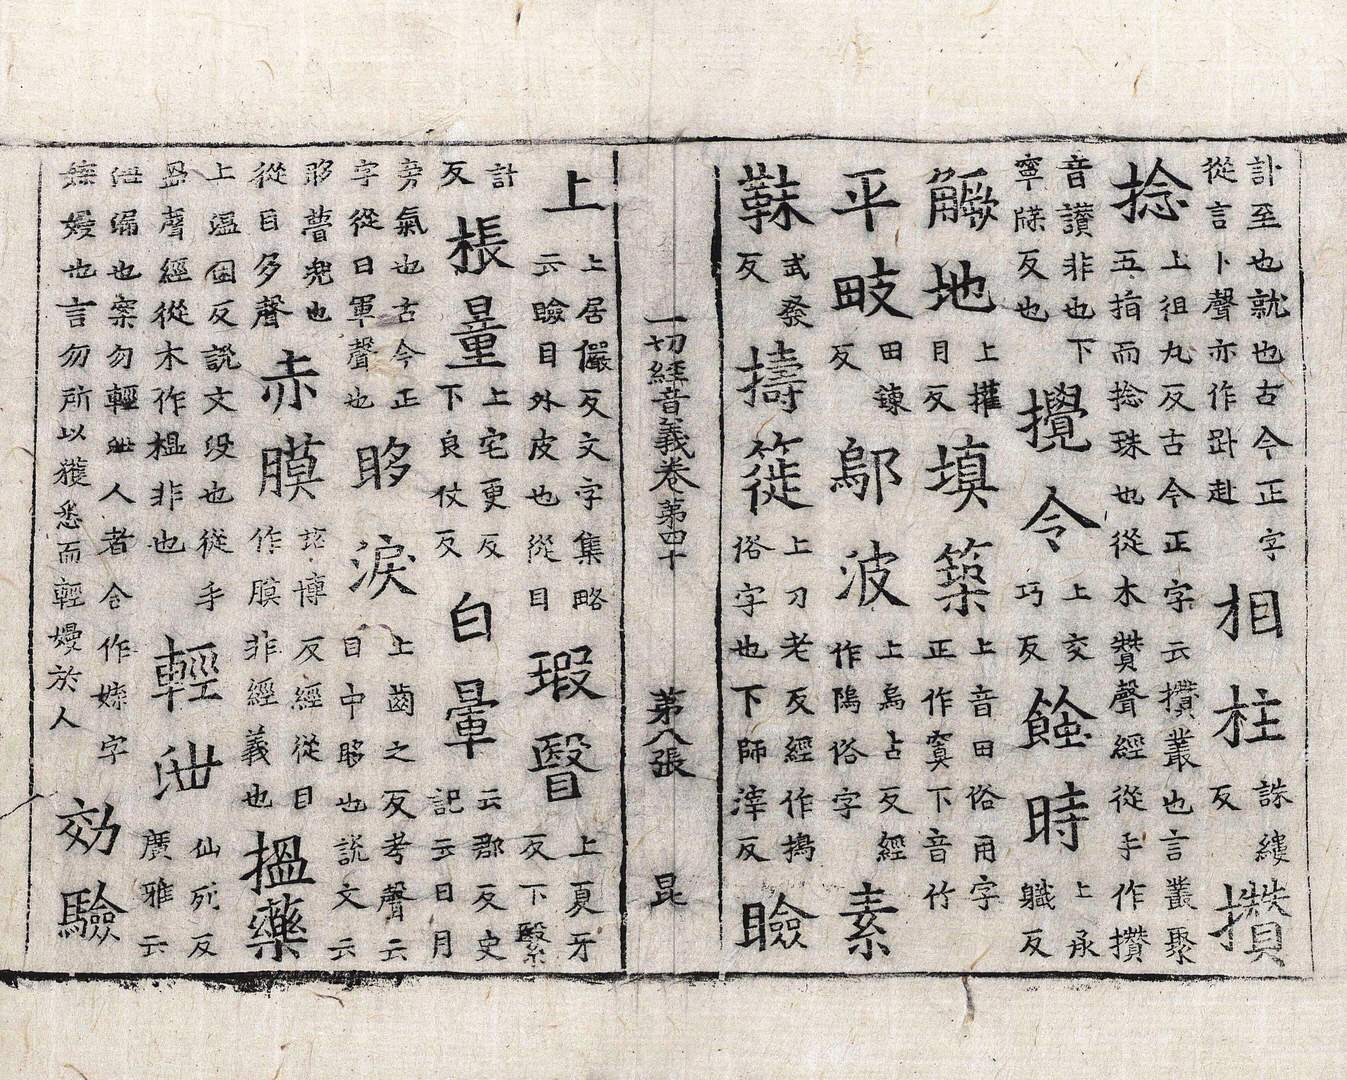 訃至也就也古今正字
從言卜聲亦作趴赴
相柱
誅縷
反
攢
捻
上徂丸反古今正字云攢叢也言叢聚
五指而捻珠也從木贊聲經從手作攢
音讃非也下
寧牒反也
攪令
上交
巧反
蝕時
上承
職反
觸地
上攉
月反
填築
上音田俗用字
正作窴下音竹
平畋
田鍊
反
鄔波
上烏古反經
作隖俗字
素
靺
式發
反
擣簁
上刀老反經作搗
俗字也下師滓反
瞼
一切經音義卷第四十
第八張
昆
上
上居儼反文字集略
云瞼目外皮也從目
瑕翳
上夏牙
反下緊
計
反
棖量
上宅更反
下良仗反
白暈
云郡反史
記云日月
旁氣也古今正
字從日軍聲也
眵淚
上齒之反考聲云
目中眵也說文云
眵瞢兜也
從目多聲
赤膜
諮博反經從目
作膜非經義也
搵藥
上溫困反說文没也從手
昷聲經從木作榅非也
輕泄
仙列反
廣雅云
泄漏也案勿輕泄人者合作媟字
媟嫚也言勿所以獲悉而輕嫚於人
効驗